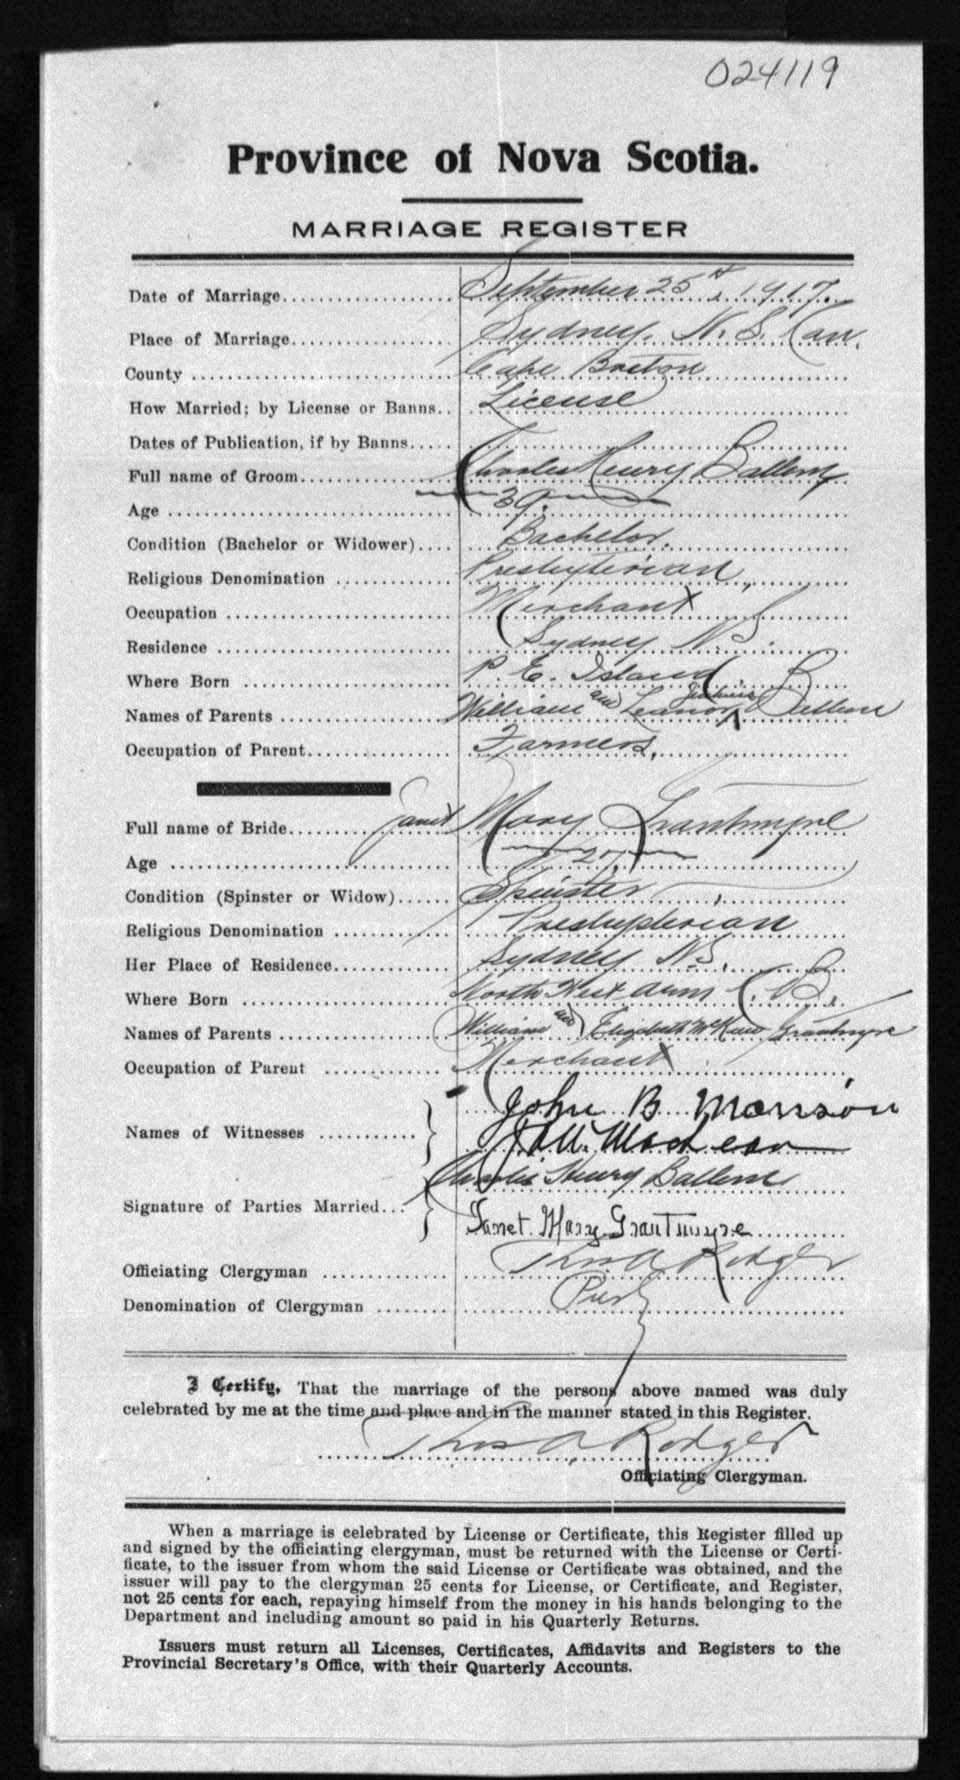 024119
Province of Nova Scotia.
MARRIAGE REGISTER
Date of Marriage September 25th, 1917.
Place of Marriage Sydney. N. S. Can.
County Cape Breton
How Married; by License or Banns.. License
Dates of Publication, if by Banns
Full name of Groom Charles Henry Ballem
Age 39.
Condition (Bachelor or Widower) Bachelor.
Religious Denomination Presbyterian,
Occupation Merchant
Residence Sydney N.S.
Where Born P. E. Island.
Names of Parents William and Leanor Jenkins Ballem
Occupation of Parent Farmers,
Full name of Bride Janet Mary Grantmyre
Age 27
Condition (Spinster or Widow) Spinster
Religious Denomination Presbyterian
Her Place of Residence Sydney N.S.
Where Born North West Arm C.B.
Names of Parents William and Elizabeth Grantmyre
Occupation of Parent Merchant
John B Morrison
Names of Witnesses
Charles Henry Ballem
Signature of Parties Married
Janet Mary Grantmyre
Officiating Clergyman Thos A Rodger
Denomination of Clergyman Presby
I Certify, That the marriage of the persons above named was duly
celebrated by me at the time and place and in the manner stated in this Register.
Thos A Rodger
Officiating Clergyman.
When a marriage is celebrated by License or Certificate, this Register filled up
and signed by the officiating clergyman, must be returned with the License or Certi-
ficate, to the issuer from whom the said License or Certificate was obtained, and the
issuer will pay to the clergyman 25 cents for License, or Certificate, and Register,
not 25 cents for each, repaying himself from the money in his hands belonging to the
Department and including amount so paid in his Quarterly Returns.
Issuers must return all Licenses, Certificates, Affidavits and Registers to the
Provincial Secretary's Office, with their Quarterly Accounts.